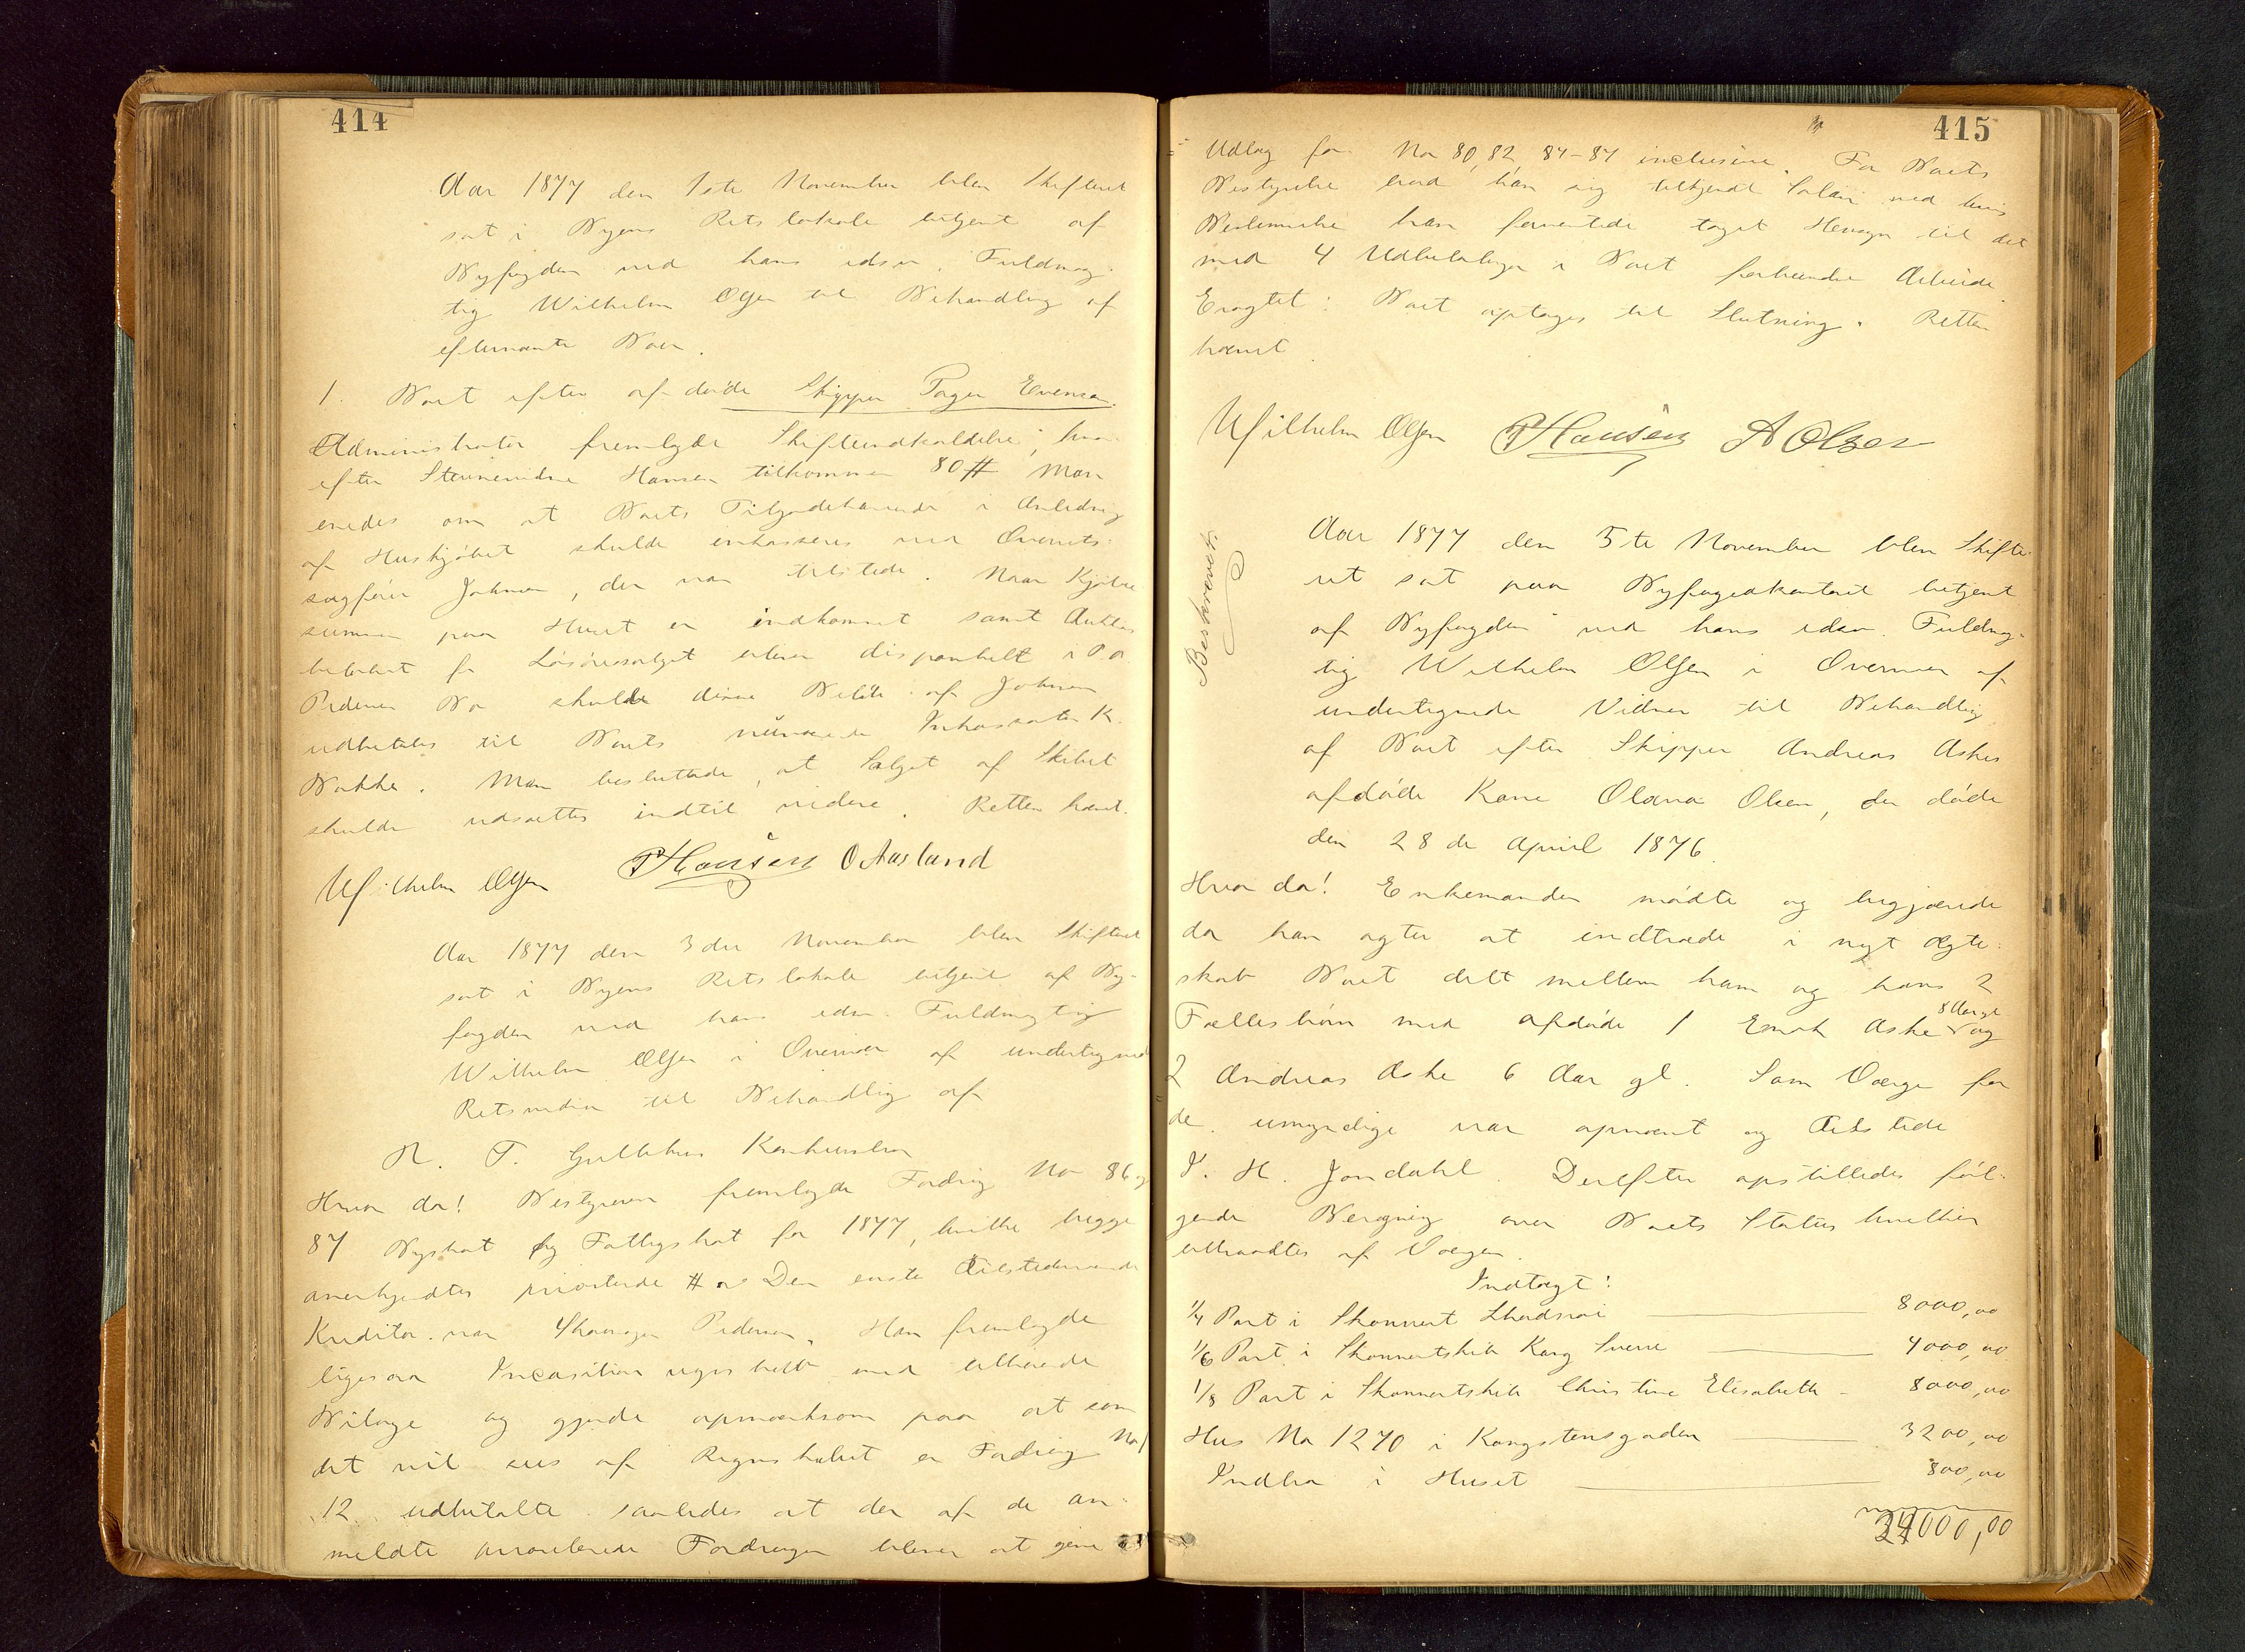 414
Aar 1877 den 1ste November blev Skifteret
sat i Byens Retslokale betjent af
Byfogden ved hans edsv. Fuldmæg-
tig Wilhelm Olsen til Behandling af
efternævnte Boer.
1. Boet efter afdøde Skipper Tager Evensen.
Administrator fremlagde Skifteindkaldelse, hvor
efter Stevnevidne Hansen tilkommer 80 # Man
enedes om at Boets Tilgodehavende i Anledning
af Huskjøbet skulde inkasseres ved Overrets-
sagfører Johnsen, der var tilstede. Naar Kjøbe
summen paa Huset er indkommet samt Auktions
beløbet for Løsøresalget bliver disponibelt i P. A.
Pedersen Bo skulde disse Beløb af Johnsen
udbetales til Boets nuværende Inkassator K.
Bakke. Man besluttede, at Salget af Skibet
skulde udsættes indtil videre. Retten hævet.
Wilhelm Olsen PHansen O Aasland
Aar 1877 den 3die November blev Skifteret
sat i Byens Retslokale betjent af By-
fogden ved hans edsv. Fuldmægtig
Wilhelm Olsen i Overvær af undertegnede
Retsvidner til Behandling af
N. T. Gullehus Konkursbo
Hvor da! Bestyreren fremlagde Fordring No 86 og
87 Byskat og Fattigskat for 1877, hvilke begge
anerkjendtes prioriterede # Den eneste tilstedeværende
Kreditor var Skomager Pedersen. Han fremlagde
ligesaa Incasationsregnskab med tilhørende
Bilage og gjorde opmærksom paa at som
det vil sees af Regnskabet er Fordring No 1
12 udbetalte saaledes at der af de an-
meldte prioriterede Fordringer bliver at gjøre
415
Udlæg for No 80, 82, 84-87 inclusive. For Boets
Bestyrelse bad han sig tilkjendt Salær ved
Bestemmelse han forventede taget Hensyn til det
med 4 Udbetalinger i Boet forbundne Arbeide.
Eragtet: Boet optages til Slutning. Retten
hævet.
Wilhelm Olsen PHansen A Olsen
Beskrevet.
Aar 1877 den 5te November blev Skifte-
ret sat paa Byfogedkontoret betjent
af Byfogden ved hans edsv. Fuldmæg-
tig Wilhelm Olsen i Overvær af
undertegnede Vidner til Behandling
af Boet efter Skipper Andreas Askes
afdøde Kone Olava Olsen, der døde
den 28de April 1876.
Hvor da! Enkemanden mødte og begjærede
da han agter at indtræde i nyt Ægte-
skab Boet delt mellem ham og hans 2
Fællesbørn med afdøde 1 Enok Aske 8 Aar gl og
2 Andreas Aske 6 Aar gl. Som Værge for
de umyndige var opnævnt og tilstede
I. H. Jondahl. Derefter opstilledes føl-
gende Beregning over Boets Status hvilken
tiltraadtes af Værgen.
Indtægt:
1/4 Part i Skonnert 8000,00
1/6 Part i Skonnertskib Kong Sverre 4000,00
1/8 Part i Skonnertskib Christine Elisabeth - 8000,00
Hus No 1270 i Kongstensgaden 3200,00
Indbo i Huset 800,00
24000,00